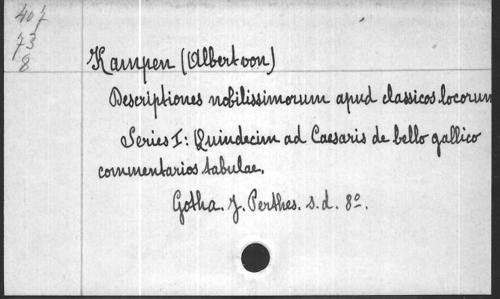 407
73
8
Kampen (Albert von)
Descriptiones nobilissimorum apud classicos locorum
Series I: Quindecim ad Caesaris de bello gallico
commentarios tabulae.
Gotha. J. Perthes. s. d. 8º.